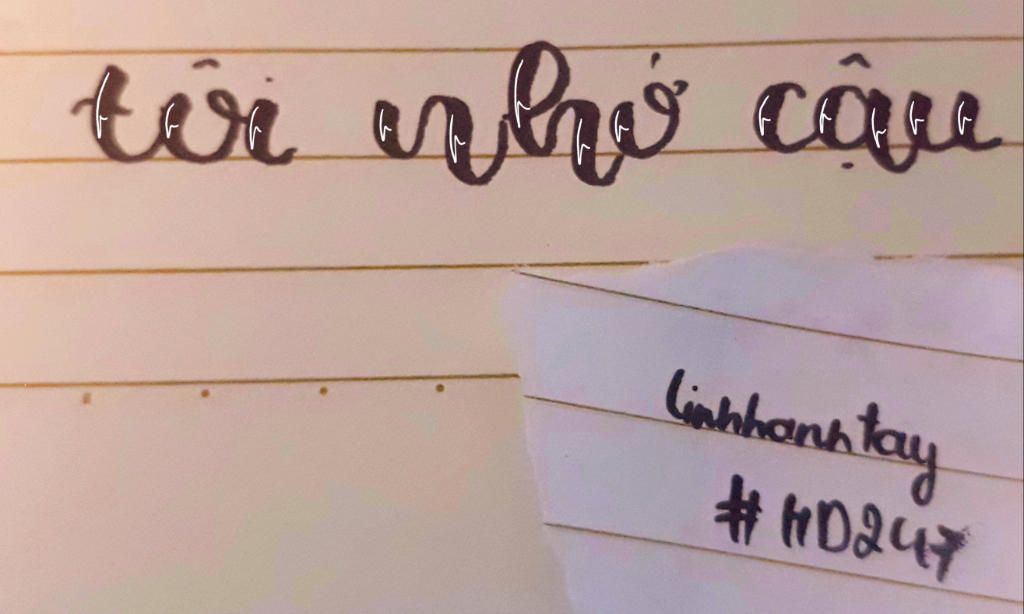 tôi nhớ cậu
linhhanhtay
#HD247